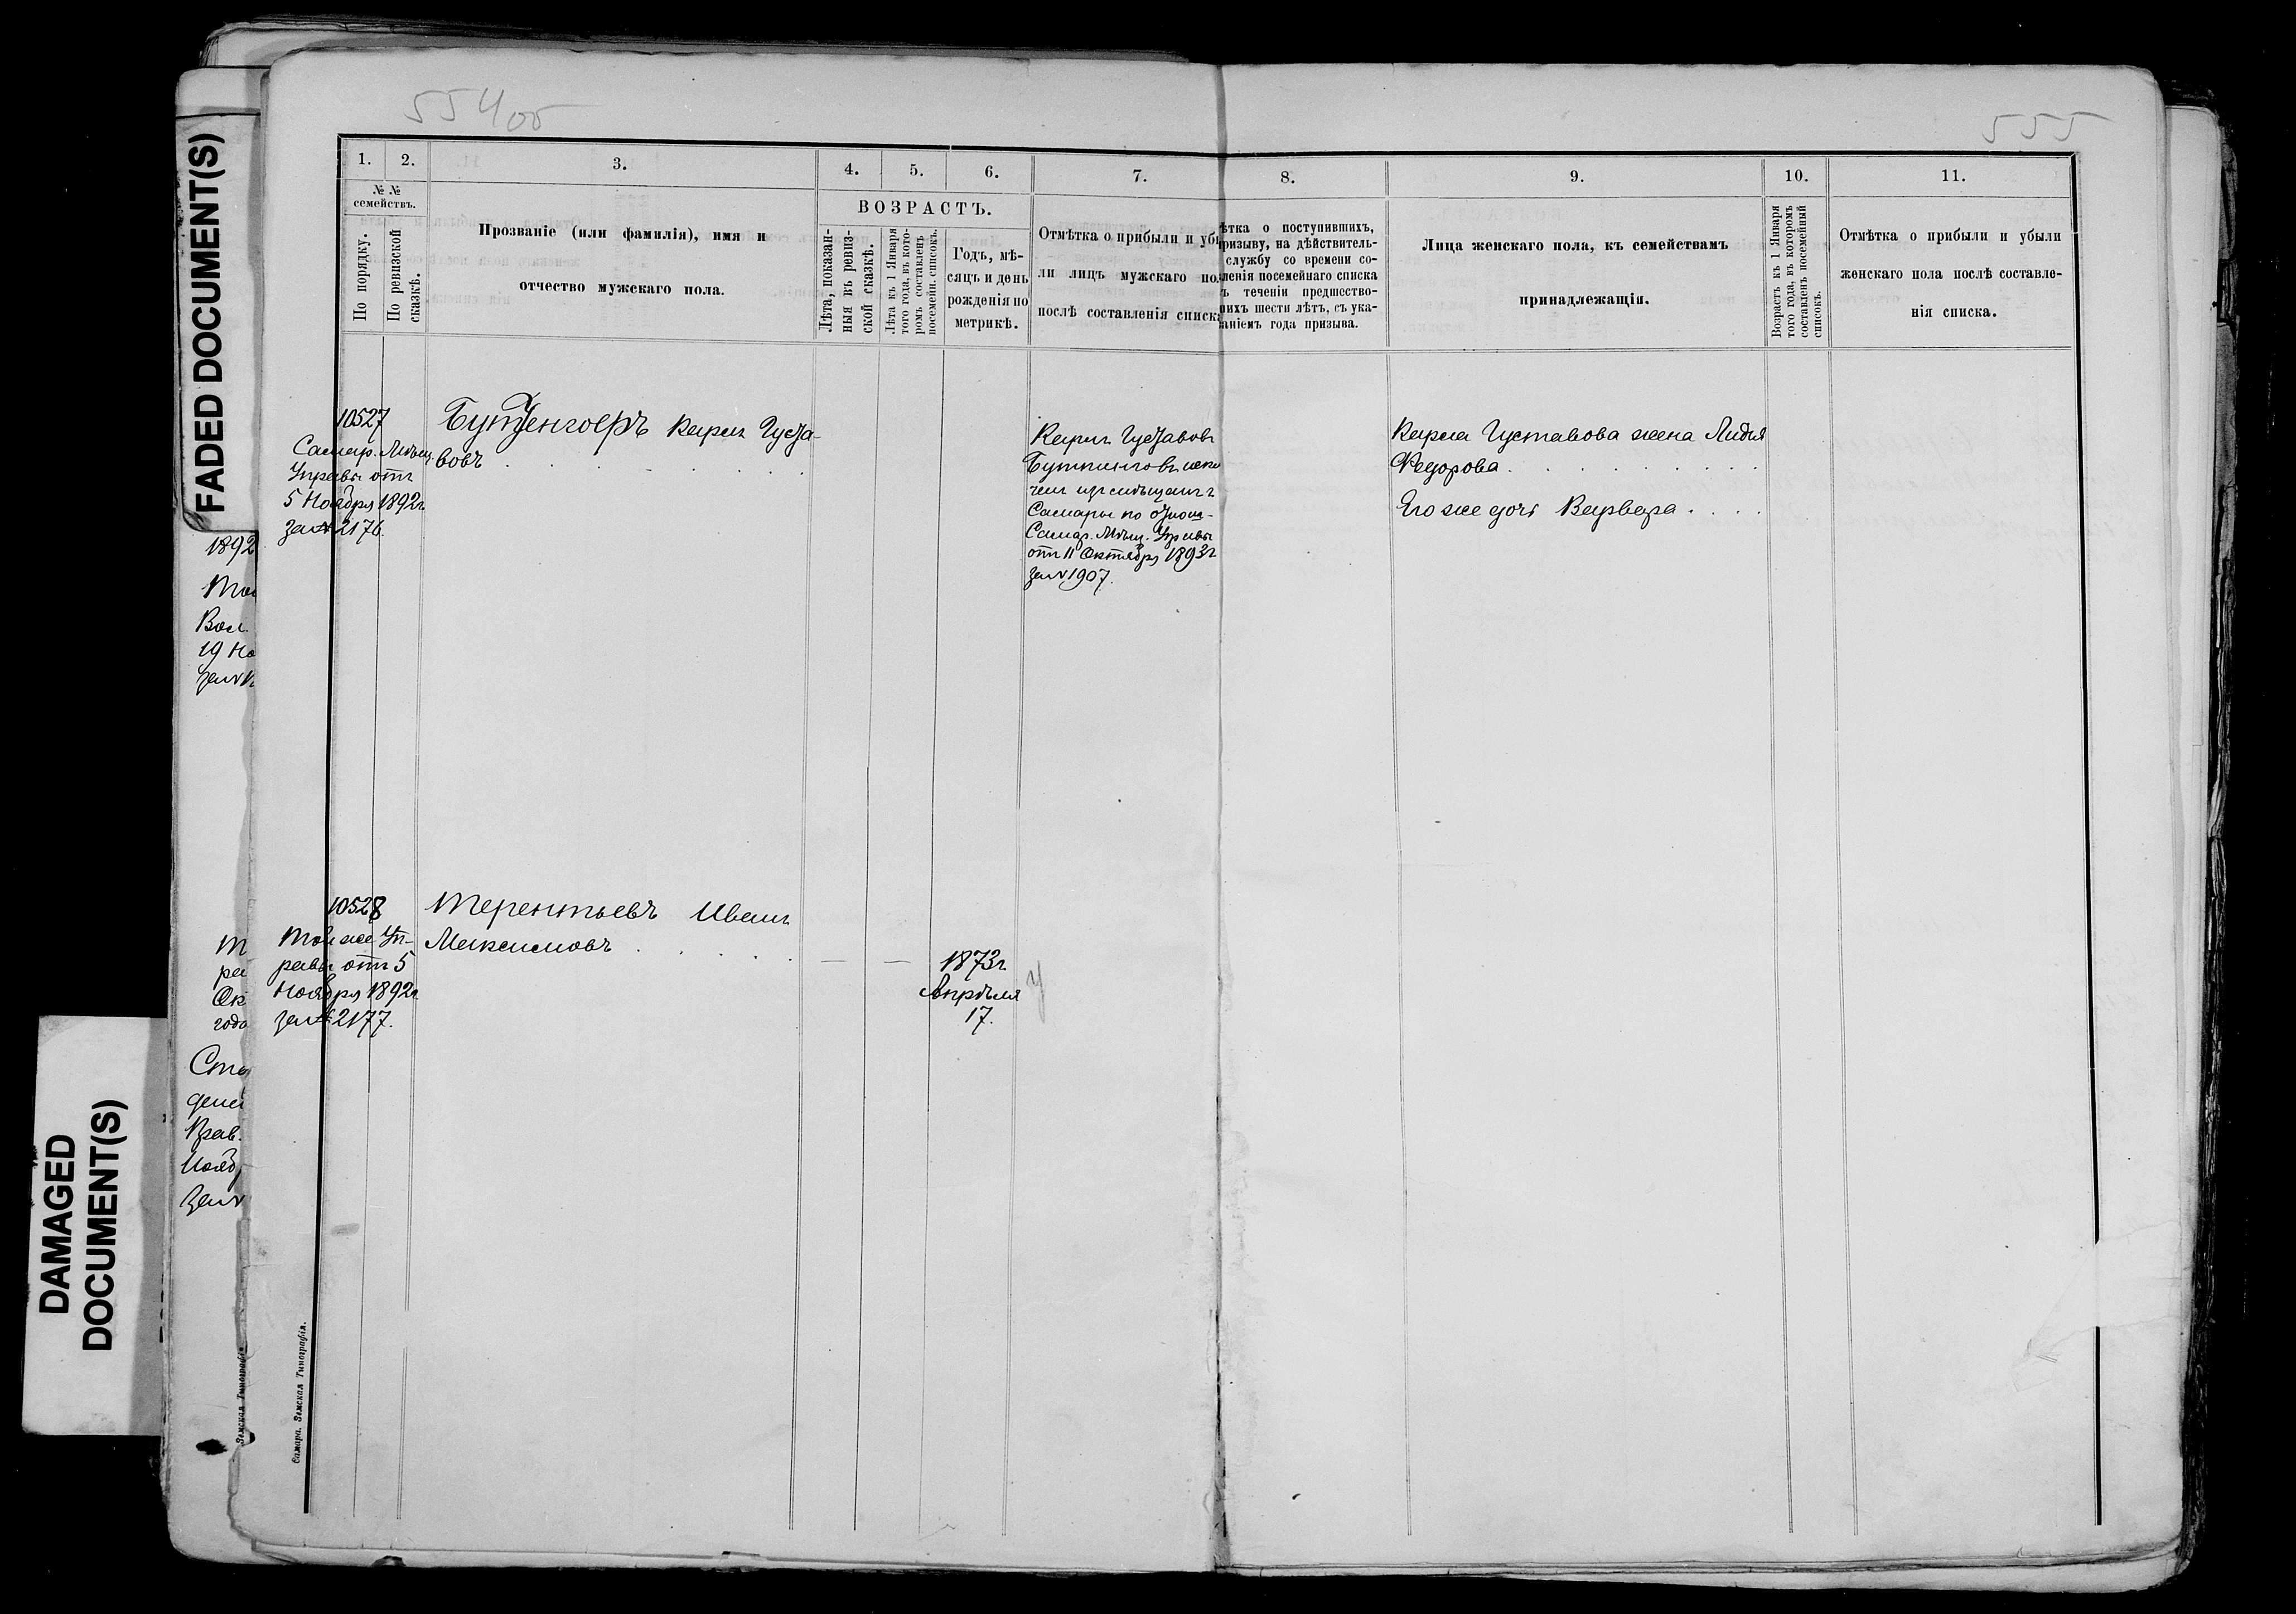 554об
555
FADED DOCUMENT(S)
DAMAGED
DOCUMENT(S)
1.
2.
3.
4.
5.
6.
7.
8.
9.
10.
11.
№ №
семействъ.
По порядку.
По ревизской
сказкѣ.
Прозваніе (или фамилія), имя и
отчество мужскаго пола.
ВОЗРАСТЪ.
Лѣта, показан-
ныя въ ревиз-
ской сказкѣ.
Лѣта къ 1 Января
того года, въ кото-
ромъ составленъ
посемейн. списокъ.
Годъ, мѣ-
сяцъ и день
рожденія по
метрикѣ.
Отмѣтка о прибыли и уб
ли лицъ мужскаго по
послѣ составленія списк
ѣтка о поступившихъ,
ризыву, на дѣйствитель-
службу со времени со-
ленія посемейнаго списка
ъ теченіи предшество-
шихъ шести лѣтъ, съ ука-
аніемъ года призыва.
Лица женскаго пола, къ семействамъ
принадлежащія.
Возрастъ къ 1 Января
того года, въ которомъ
составленъ посемейный
списокъ.
Отмѣтка о прибыли и убыли
женскаго пола послѣ составле-
нія списка.
10527
Самар. Мѣщ.
Управы отъ
5 Ноября 1892г
за № 2176.
Бутенгофъ Карлъ Густа-
вовъ
Карлъ Густавовъ
Самары по
Самар. Мѣщ. Управы
отъ 11 Октября 1893г
за № 1907.
Карла Густавова жена Лидія
Федорова
Его же дочь Варвара
10528
Той же Уп-
равы отъ 5
Ноября 1892г
за № 2177.
Терентьевъ Иванъ
Максимовъ
— —
1873г
Апрѣля
17.
1892
Вол.
19 Но
Ок
года
Самара. Земская Типографія.
Земская Типографія